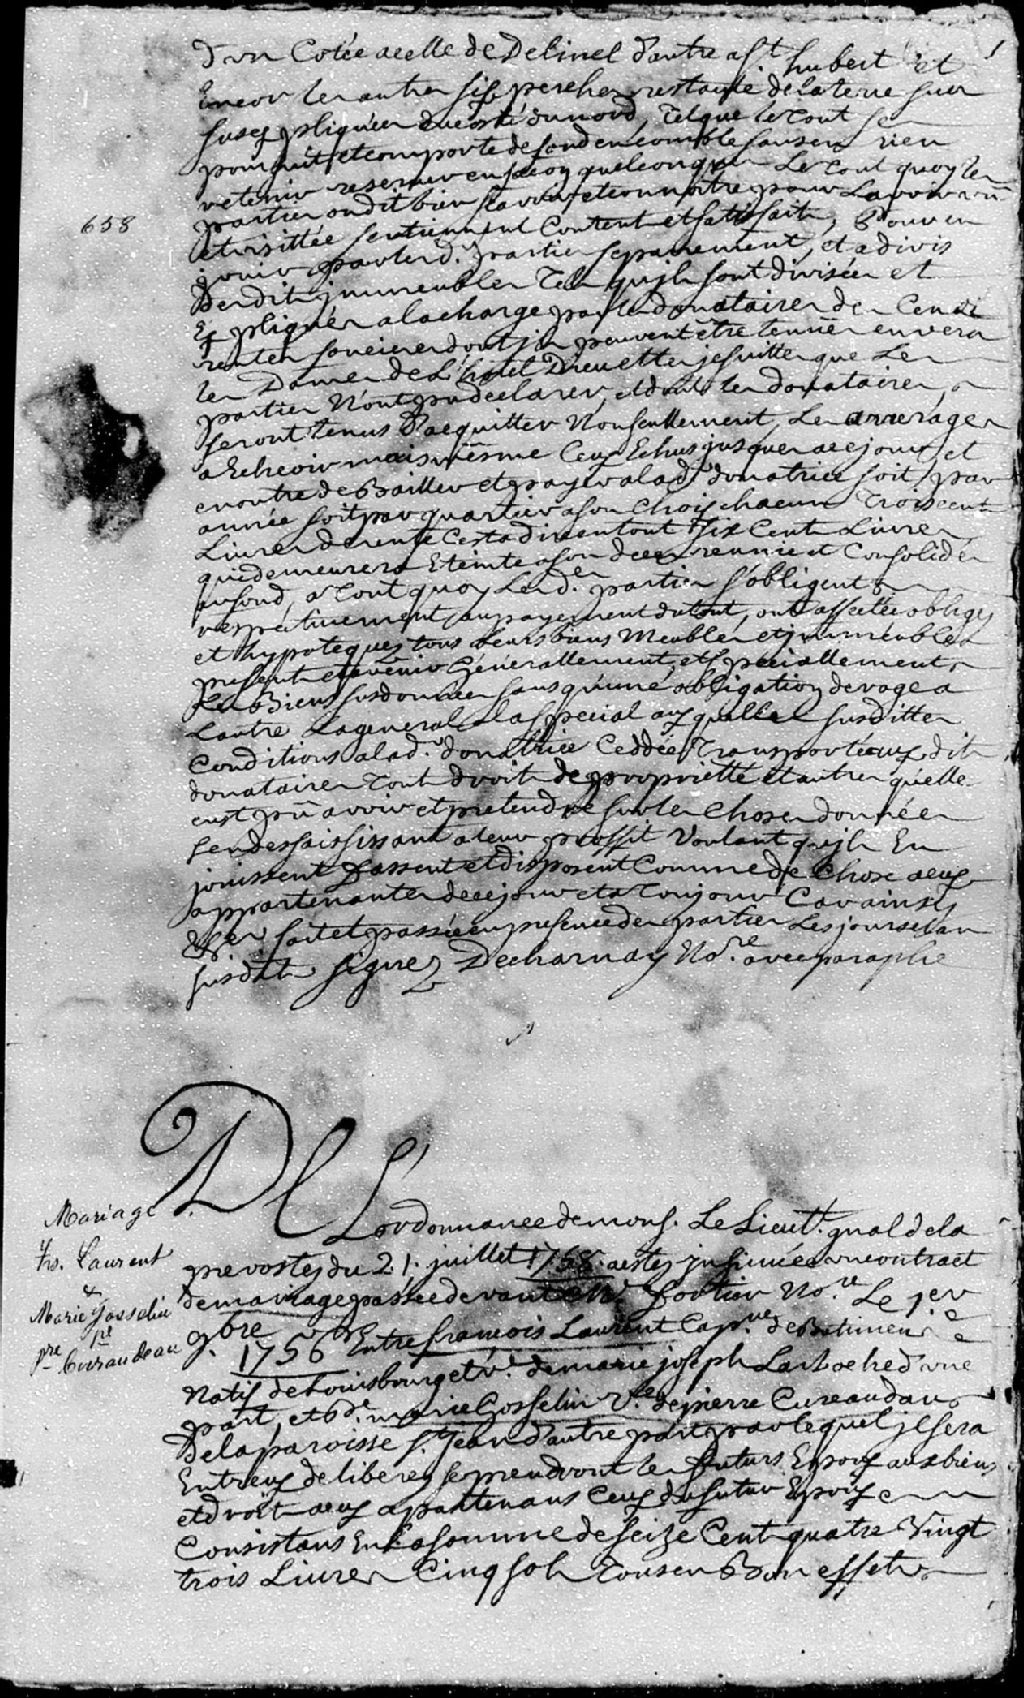 d'un Cotée a celle de Delinel d'autre a St. hubert et
Encor les autres six perches restante de la terre sus
susexpliquée du costé du nord, Tel que le Tout se
poursuit et comporte de fond en comble sans en rien
retenir reserver en façon quelconque Le Tout quoy les
parties ont dit bien scavoir et connoitre pour Lavoir vü
658
et visittée se tiennent Content et satisfait, Pour en
jouir par lesd. parties separement, et a divis
Desdits jmmeubles Tels quils sont divisées et
Expliqués a la charge par les donataires des Cens et
rentes foncieres dont ils peuvent être tenües envers
les Dames de L'hotel Dieu et les jesuittes que Les
parties N'ont pu declarer, et dont les donataires
seront tenus D'acquitter Non seullement, Les arrerages
a Echeoir mais même Ceux Echus jusques a ce jour et
en outre de Bailler et payer a lad. donatrice soit par
année soit par quartier a son Choix chacun Trois cent
Livres de rente Cest a dire en tout Six Cent Livres
qui demeurera Eteinte a son deces reunie et Consolidée
au fond, a Tout quoy Lesd. parties s'obligent
respectivement, au payement du tout, ont affectée obligés
et hypotequés tous leurs biens Meubles et jmmeubles
present et avenir Generallement, et speciallement
Les Biens susdonnées sans qu'une obligation deroge a
L'autre La general a la special aux quelles susdittes
Conditions a lad. donatrice Ceddée Transportée aux dits
donataires Tout droits de proprietté et autres qu'elle
eust pü avoir et pretendre sur les choses données
sen dessaisissant a leur proffit Voulant quils En
jouissent fassent et disposent Comme de Chose a eux
appartenantes de ce jour et a Toujour Car ainsy
&c. fait et passé en presence des parties Les jours et an
susdits signez Decharnay Nore. avec paraphe
De L'ordonnance de mons. Le Lieutt. gnal de la
Mariage
frs. Laurent
&
Marie Josselin
pre
Curaudeau
prevosté du 21. juillet 1758. a esté jnsinuée un contract
de mariage passée devant Me fortier Nore. Le 1er
9bre 1756 Entre francois Laurent Capne. de Batimens
Natif de Louisbourg et vf. de marie joseph d'une
part, et de marie Gosselin Ve. de pierre Cureaudau
De la paroisse St. Jean d'autre part par lequel jl sera
Entreux de liberé se prendront les futurs Epoux aux biens
et droits a eux appartenans Ceux du futur Epoux
Consistans En la somme de seize Cent quatre Vingt
trois Livres Cinq sols Tous en Bon effets